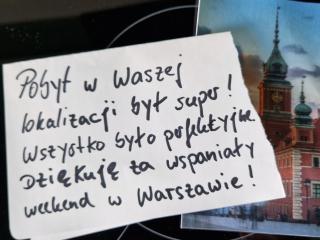 Pobyt w Waszej
lokalizacji był super!
Wszystko było perfekcyjne
Dziękuję za wspaniały
weekend w Warszawie!